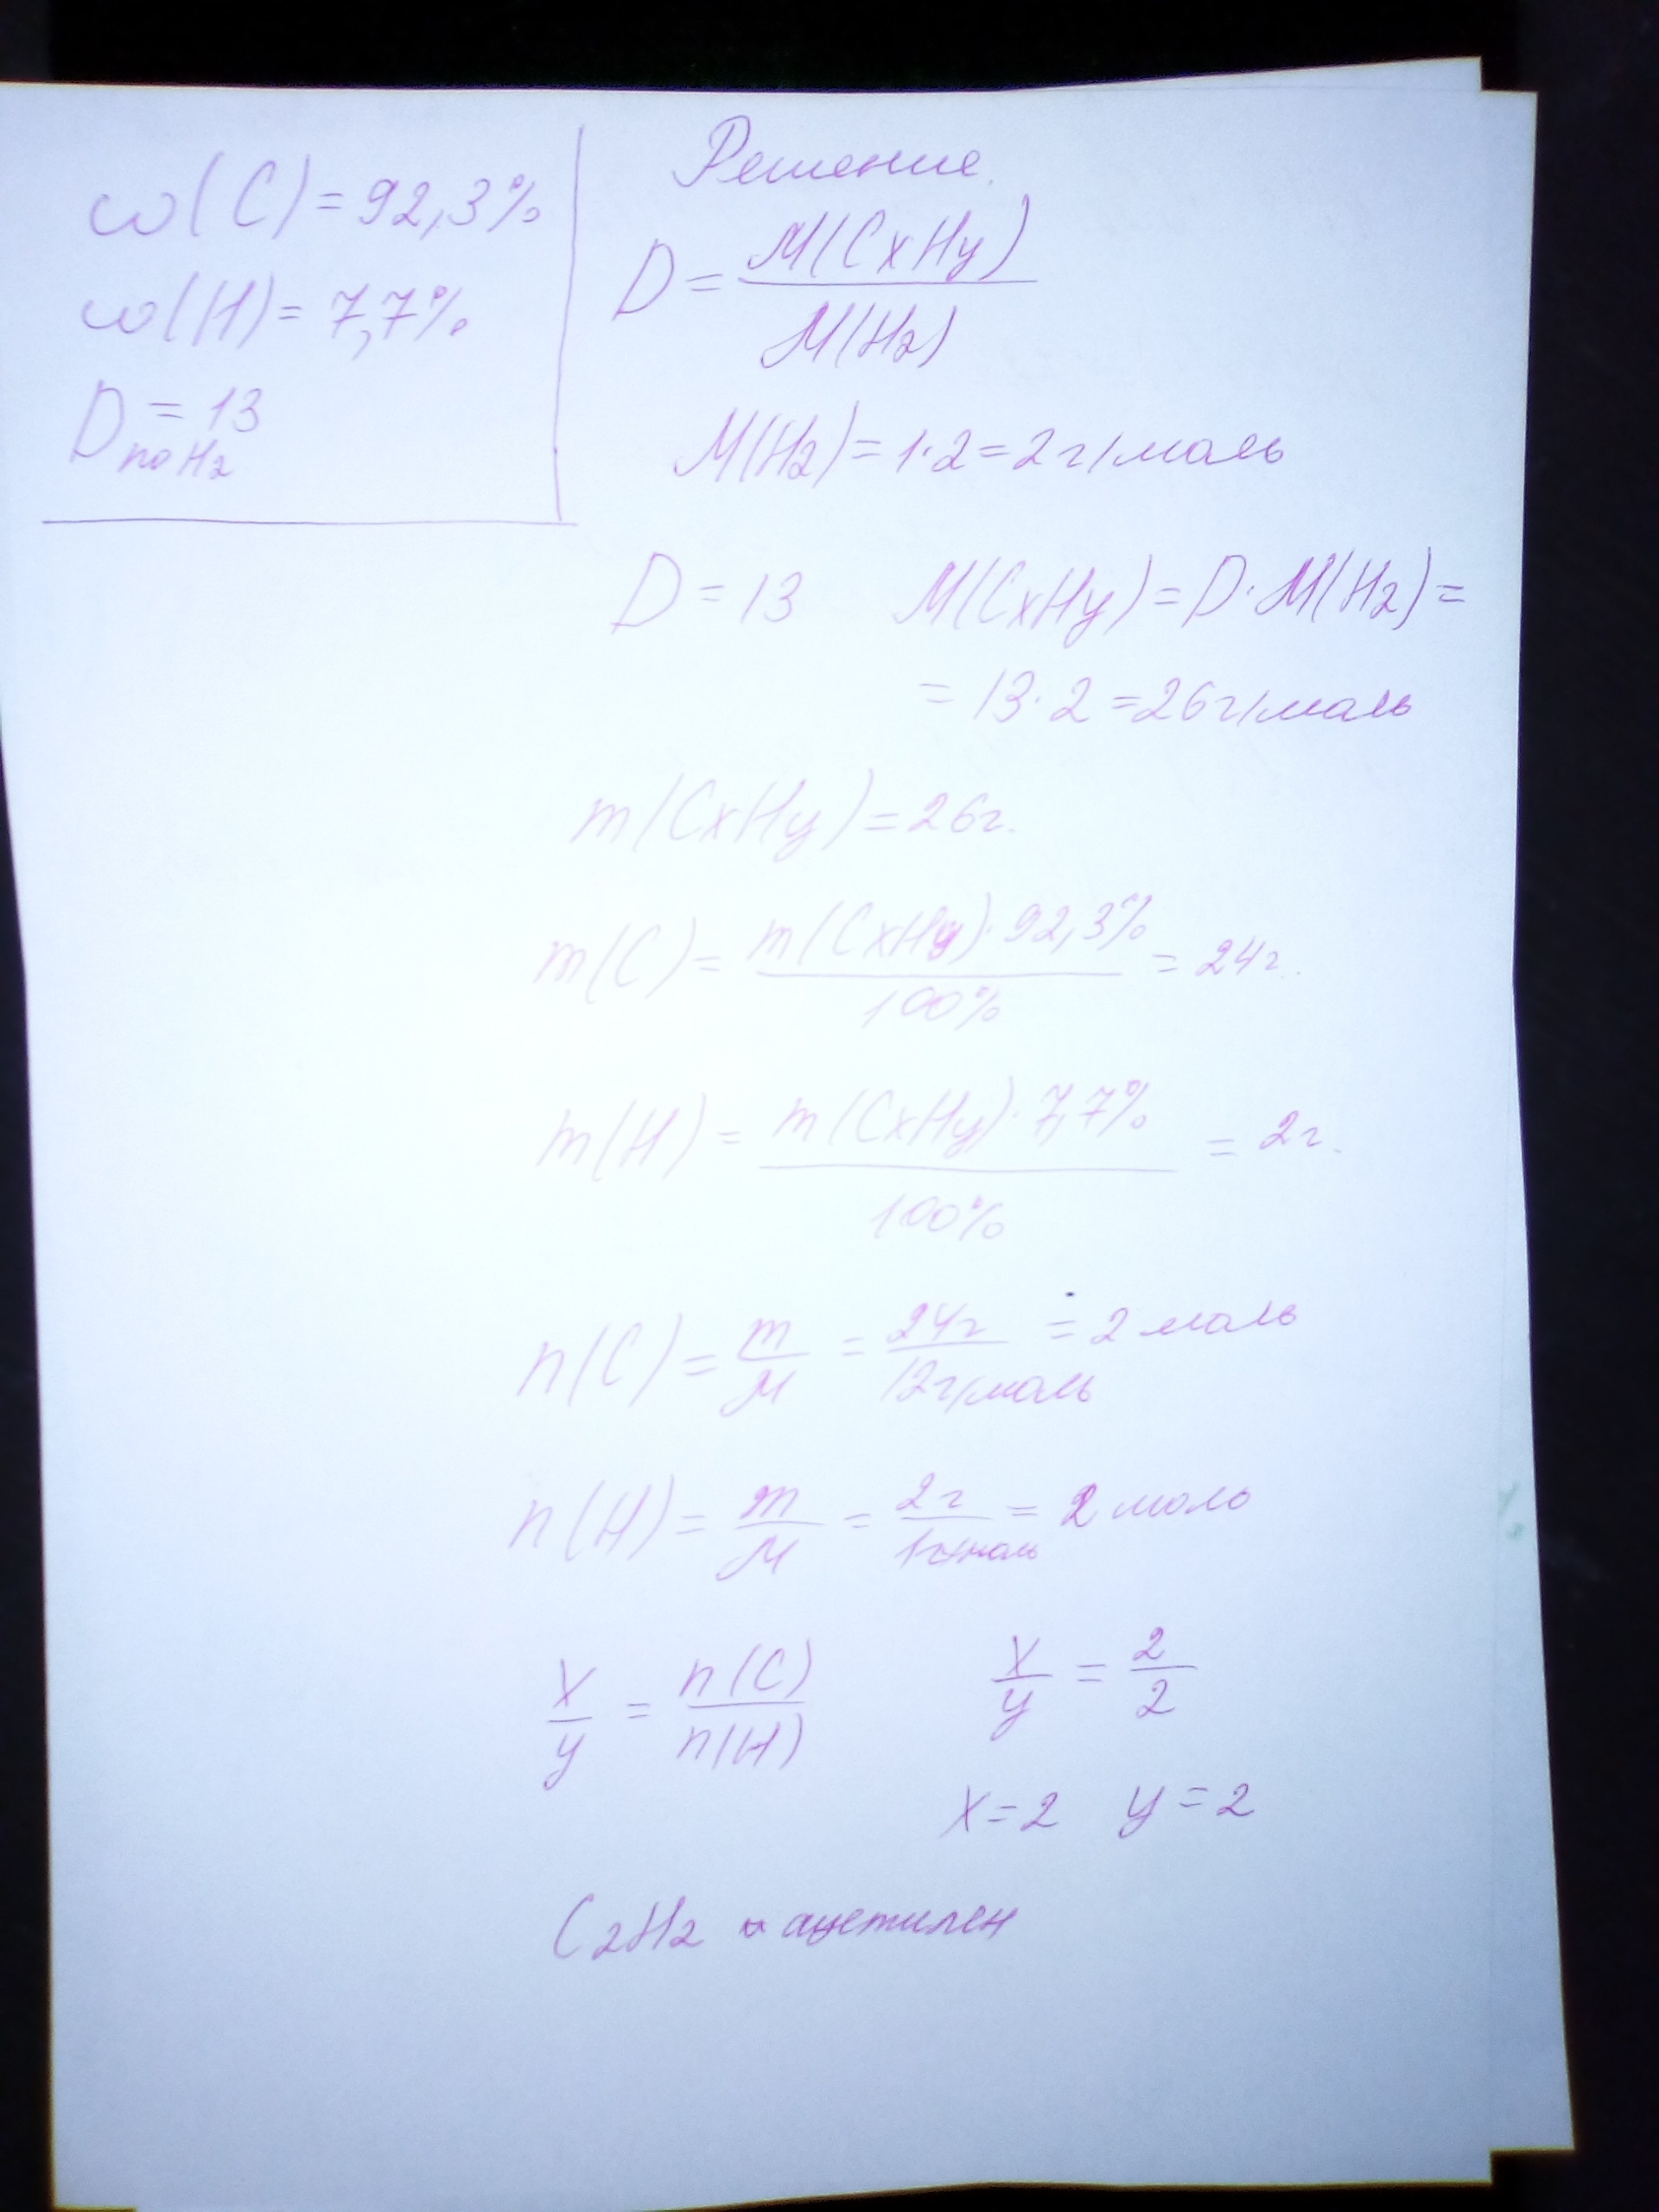 ω(C) = 92,3%
ω(H) = 7,7%
D по H₂ = 13
Решение.
D = M(CxHy) / M(H₂)
M(H₂) = 1·2 = 2 г/моль
D = 13 M(CxHy) = D·M(H₂) =
= 13·2 = 26 г/моль
m(CxHy) = 26г.
m(C) = m(CxHy)·92,3% / 100% = 24г.
m(H) = m(CxHy)·7,7% / 100% = 2г.
n(C) = m/M = 24г / 12г/моль = 2 моль
n(H) = m/M = 2г / 1г/моль = 2 моль
x/y = n(C)/n(H) x/y = 2/2
x = 2 y = 2
C₂H₂ - ацетилен